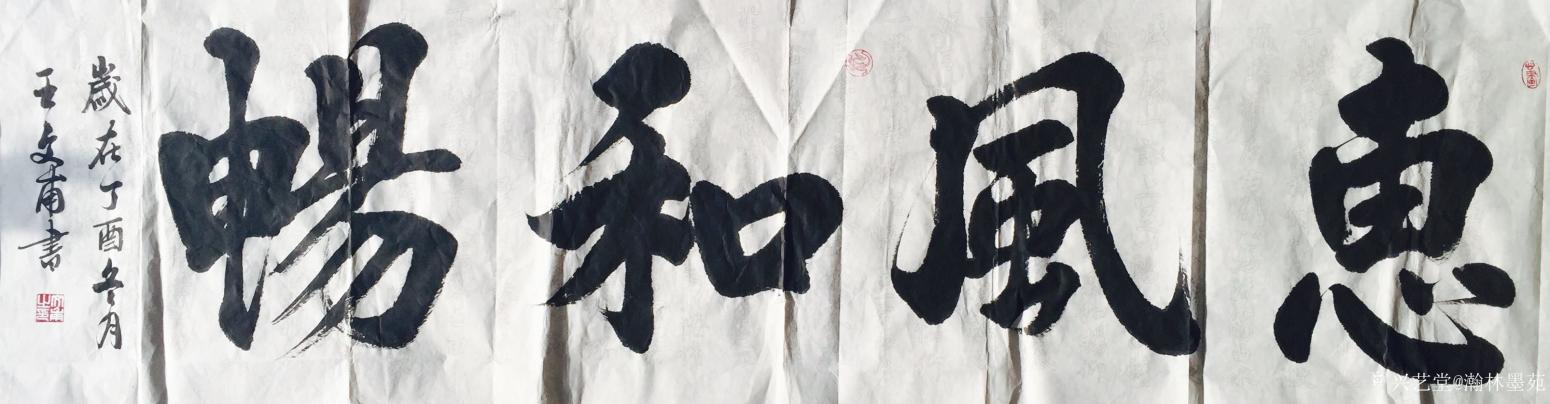 惠風和暢
歲在丁酉冬月
王文甫書
兴艺堂@瀚林墨苑